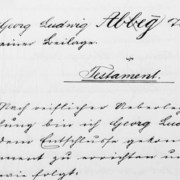 Georg Ludwig Abbeg
einer Beilage.
Testament.
Nach reiflicher Ueberle
gung bin ich Georg Lud
dem Entschlusse gekom
ment zu errichten un
wie folgt.